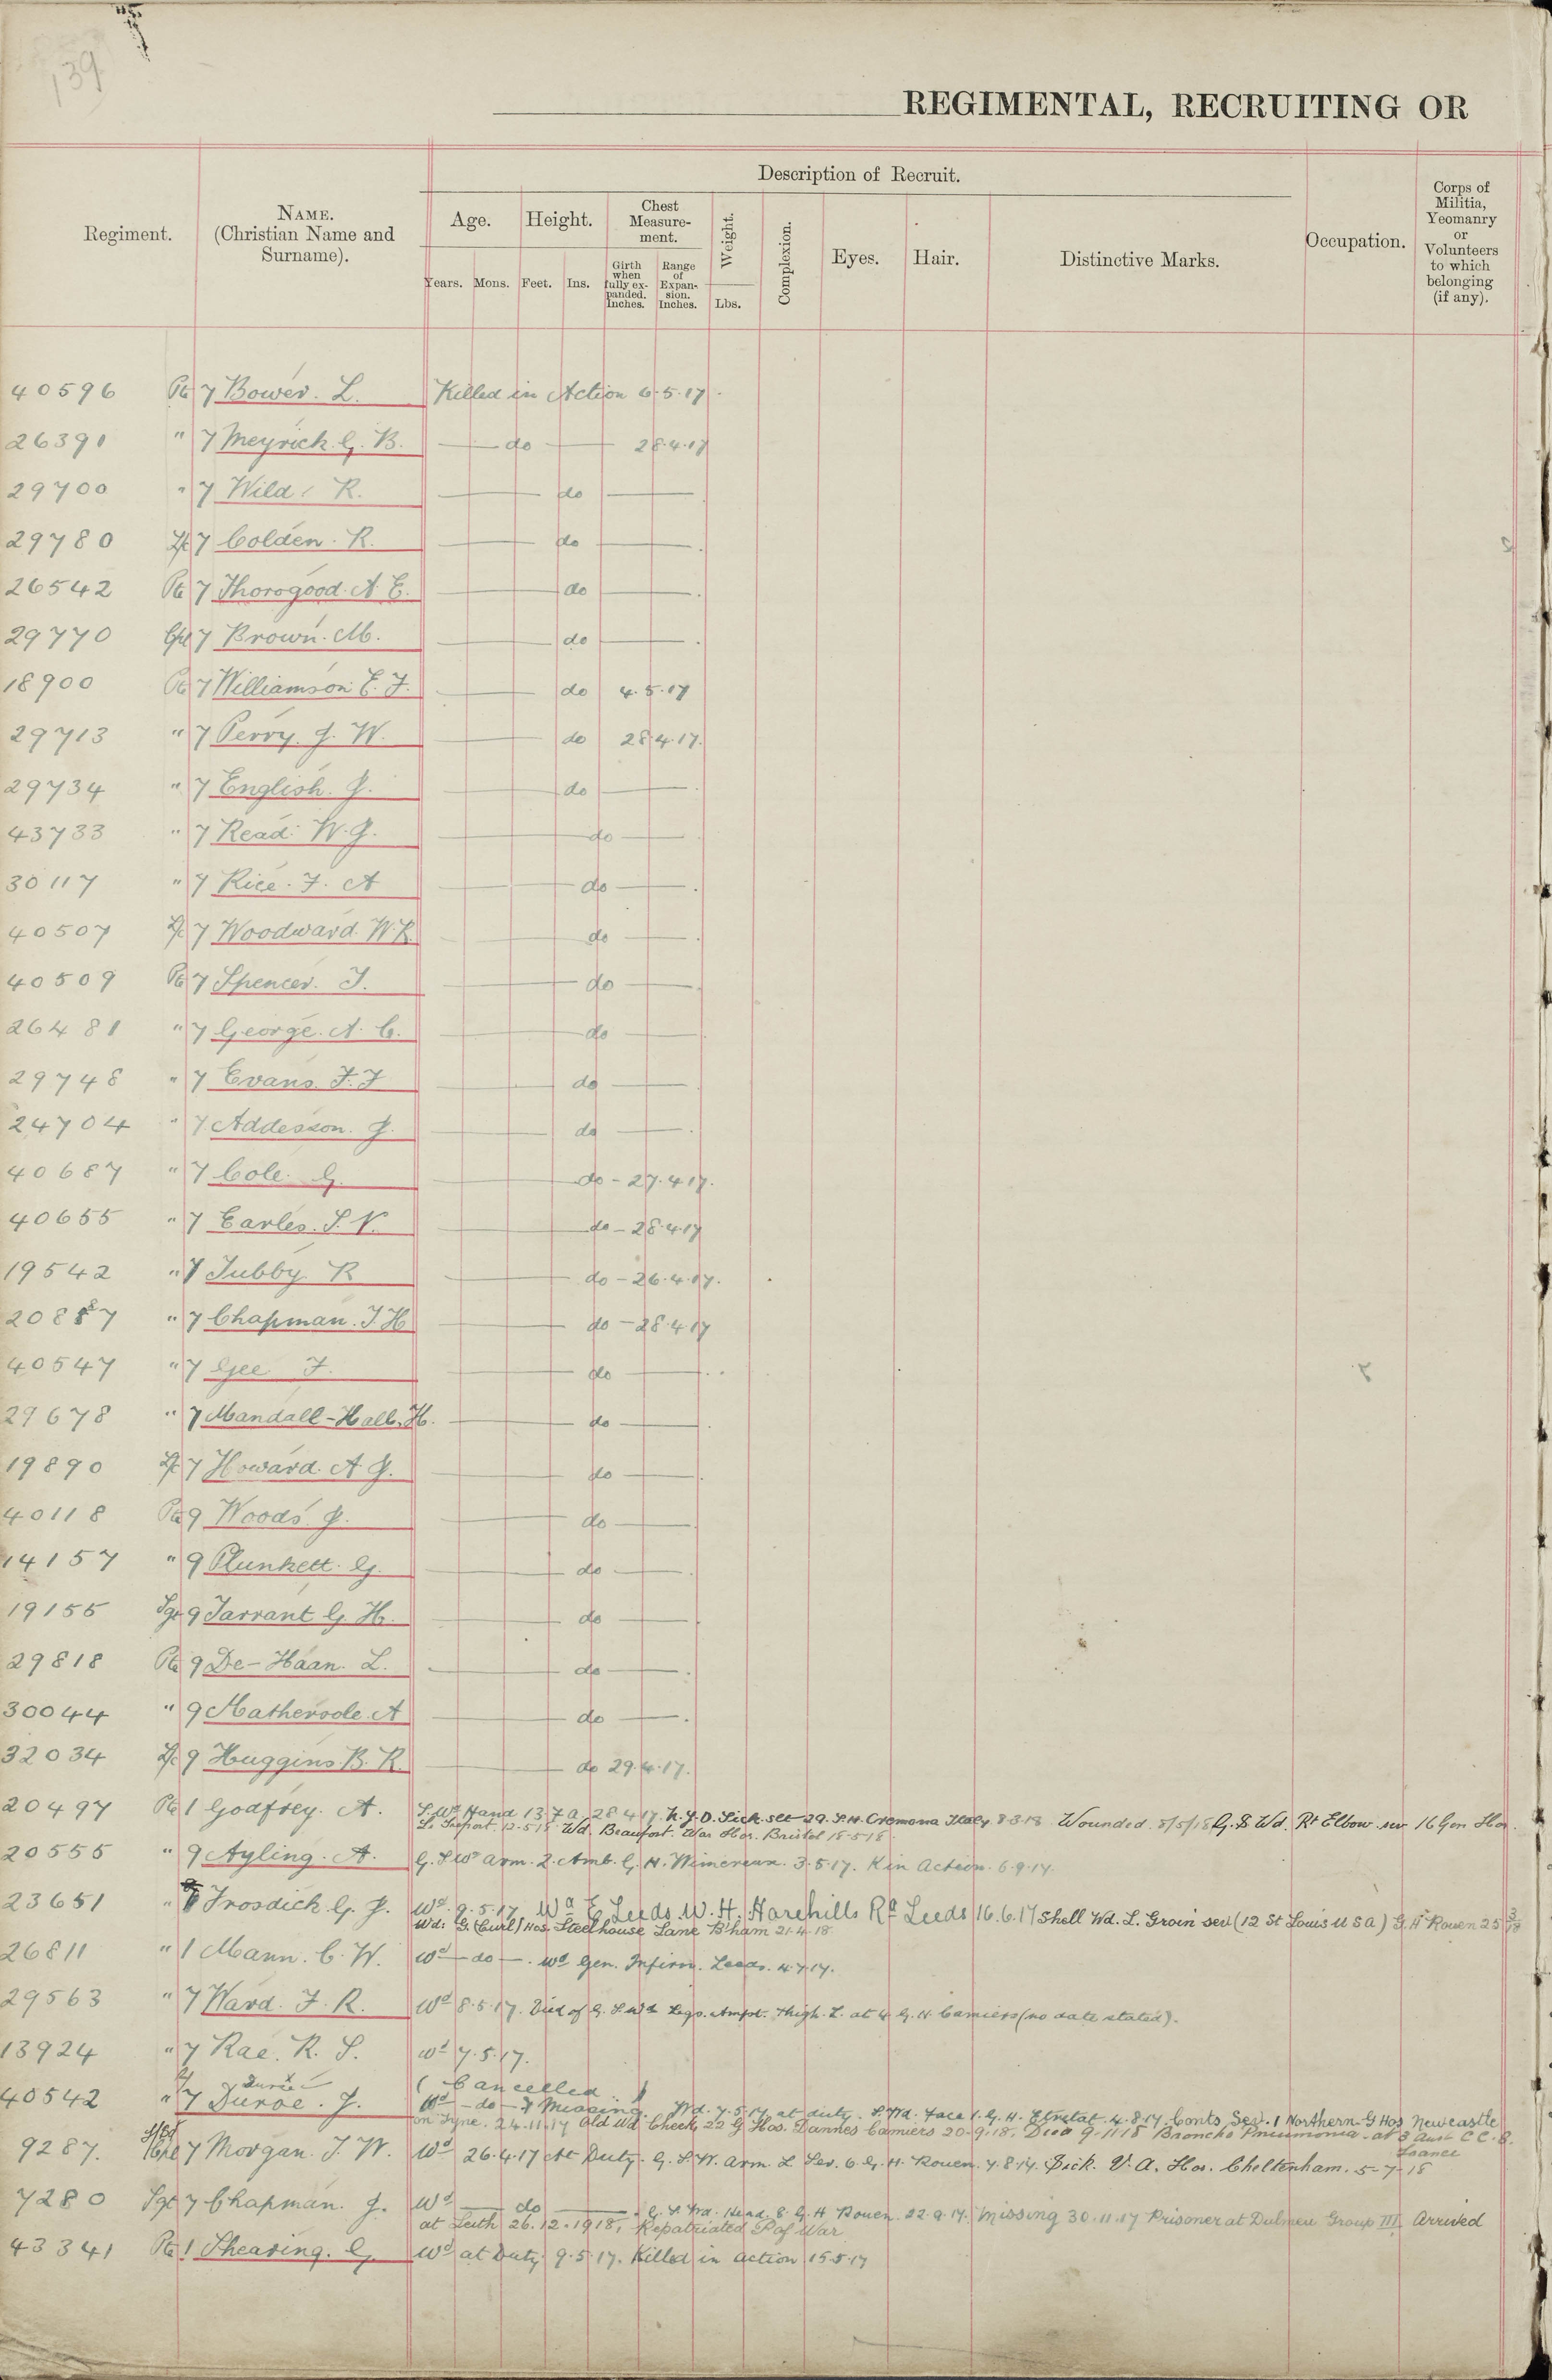 139
REGIMENTAL, RECRUITING OR
Description of Recruit.
Regiment.
NAME.
(Christian Name and
Surname).
Age.
Height.
Chest
Measure-
ment.
Weight.
Complexion.
Eyes.
Hair.
Distinctive Marks.
Occupation.
Corps of
Militia,
Yeomanry
or
Volunteers
to which
belonging
(if any).
Years.
Mons.
Feet.
Ins.
Girth
when
fully ex-
panded.
Inches.
Range
of
Expan-
sion.
Inches.
Lbs.
40596 Pte 7 Bower. L. Killed in Action 6.5.17.
26391 " 7 Meyrick. G. B. — do — 28.4.17
29700 " 7 Wild. R. — do —
29780 L/c 7 Colden. R. — do —
26542 Pte 7 Thorogood. A. E. — do —
29770 Cpl 7 Brown. M. — do —
18900 Pte 7 Williamson E. F. — do 4.5.17
29713 " 7 Perry. J. W. — do 28.4.17.
29734 " 7 English. J. — do —
43733 " 7 Read. W. J. — do —
30117 " 7 Rice. F. A — do —
40507 L/c 7 Woodward. W. R. — do —
40509 Pte 7 Spencer. T. — do —
26481 " 7 George. A. C. — do —
29748 " 7 Evans. F. J — do —
24704 " 7 Addesson. J. — do —
40687 " 7 Cole. G. — do - 27.4.17.
40655 " 7 Earles. S. V. — do - 28.4.17
19542 " 7 Tubby. R — do - 26.4.17.
20887 " 7 Chapman. T. H — do - 28.4.17
40547 " 7 Gee F. — do —
29678 " 7 Mandall-Hall. H. — do —
19890 L/c 7 Howard. A. J. — do —
40118 Pte 9 Woods. J. — do —
14157 " 9 Plunkett. G. — do —
19155 Sgt 9 Tarrant G. H. — do —
29818 Pte 9 De-Haan. L. — do —
30044 " 9 Mathersole. A — do —
32034 L/c 9 Huggins. B. R. — do 29.4.17.
20497 Pte 1 Godfrey. A. S. Wd Hand 13 F.A. 28.4.17. N.Y.D. Sick 29. S.H. Cremona Italy 8-3-18 Wounded. 8/5/18 G.S Wd. Rt Elbow. sev 16 Gen Hos.
Le Treport. 12-5-18. Wd. Beaufort. War Hos. Bristol 18-5-18
20555 " 9 Ayling. A. G. S Wd arm. 2. Amb. G. H. Wimereux. 3.5.17. K in Action. 6.9.17.
23651 " Frosdick. G. J. Wd. 9.5.17 Leeds W. H. Harehills Rd Leeds 16.6.17 Shell Wd. L. Groin sev (12 St Louis U S A) G. H Rouen 25
Wd: G. Hos. Steelhouse Lane B'ham 21-4-18
26811 " 1 Mann. C. W. Wd — do — . Wd Gen. Infirm. Leeds. 4.7.17.
29563 " 7 Ward. F. R. Wd 8.5.17. Died of G. S. Wd Legs. Ampt. thigh. L. at 4 G. H. Camiers (no date stated).
13924 " 7 Rae. R. S. Wd 7.5.17.
( Cancelled )
40542 " 7 Duroe. J. Wd — do — & Missing. Wd. 7.5.17 at duty. S. Wd. Face 1. G. H. Etretat 4.8.17. Conts. Sev. 1 Northern G Hos Newcastle
on Tyne. 24.11.17 Old Wd. Cheek, 22 G Hos. Dannes Camiers 20.9.18. Died 9.11.18 Broncho Pneumonia - at 3 Aust C C. S.
France
9287. Cpl 7 Morgan. T. W. Wd 26.4.17 At Duty. G. S. W. arm. L Sev. 6. G. H. Rouen. 7.8.17. Sick. V. A. Hos. Cheltenham. 5-7-18
7280 Sgt 7 Chapman. J. Wd — do — . G. S Wd. Head. 8. G. H Rouen. 22.9.17. Missing 30.11.17 Prisoner at Dulmen Group III. Arrived
at Leith 26.12.1918, Repatriated P of War
43341 Pte 1 Shearing. G. Wd at Duty 9.5.17. Killed in action 15.5.17